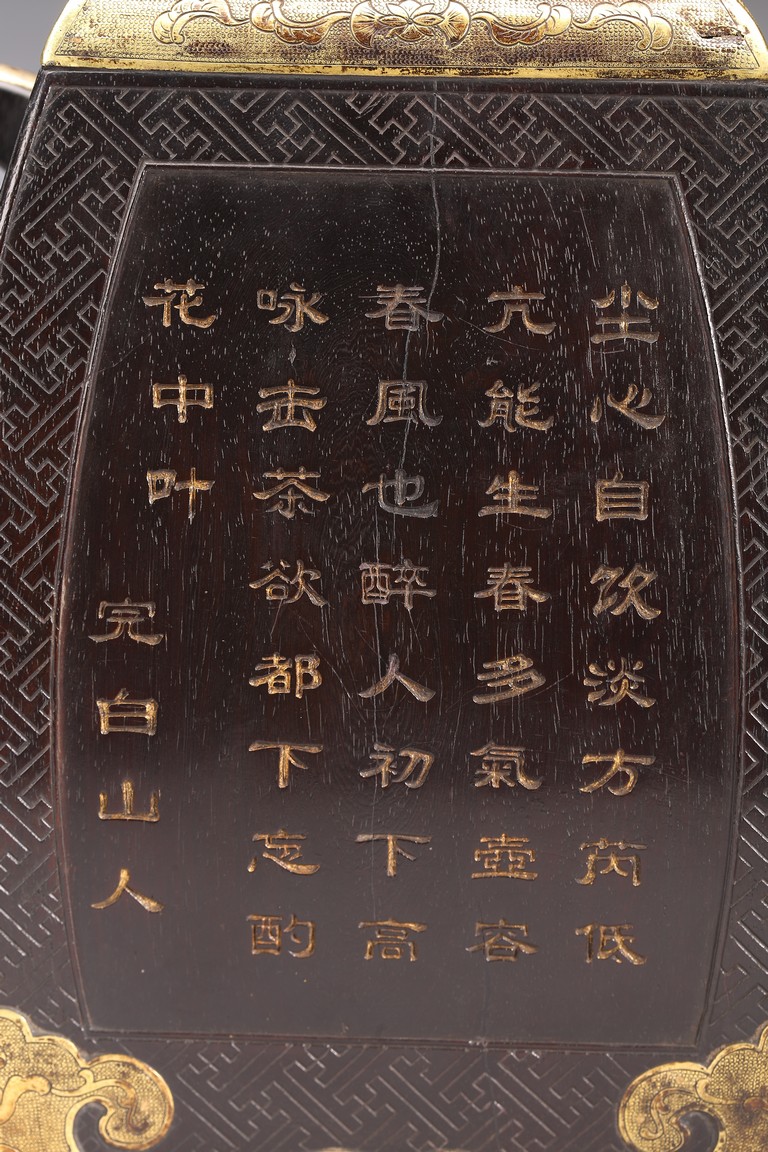 尘心自饮淡方芮低
亢能生春多氣壺容
春風也醉人初下高
咏击茶欲都下忘酌
花中叶
完白山人